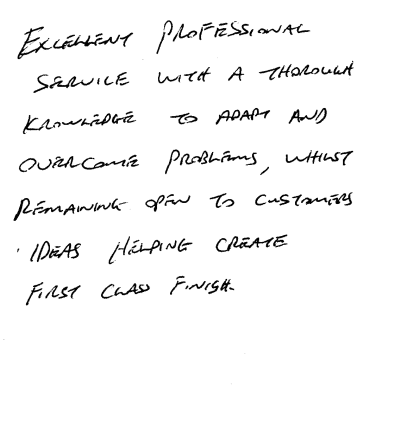 EXCELLENT PROFESSIONAL
SERVICE WITH A THOROUGH
KNOWLEDGE TO ADAPT AND
OVERCOME PROBLEMS, WHILST
REMAINING OPEN TO CUSTOMERS
IDEAS HELPING CREATE
FIRST CLASS FINISH.